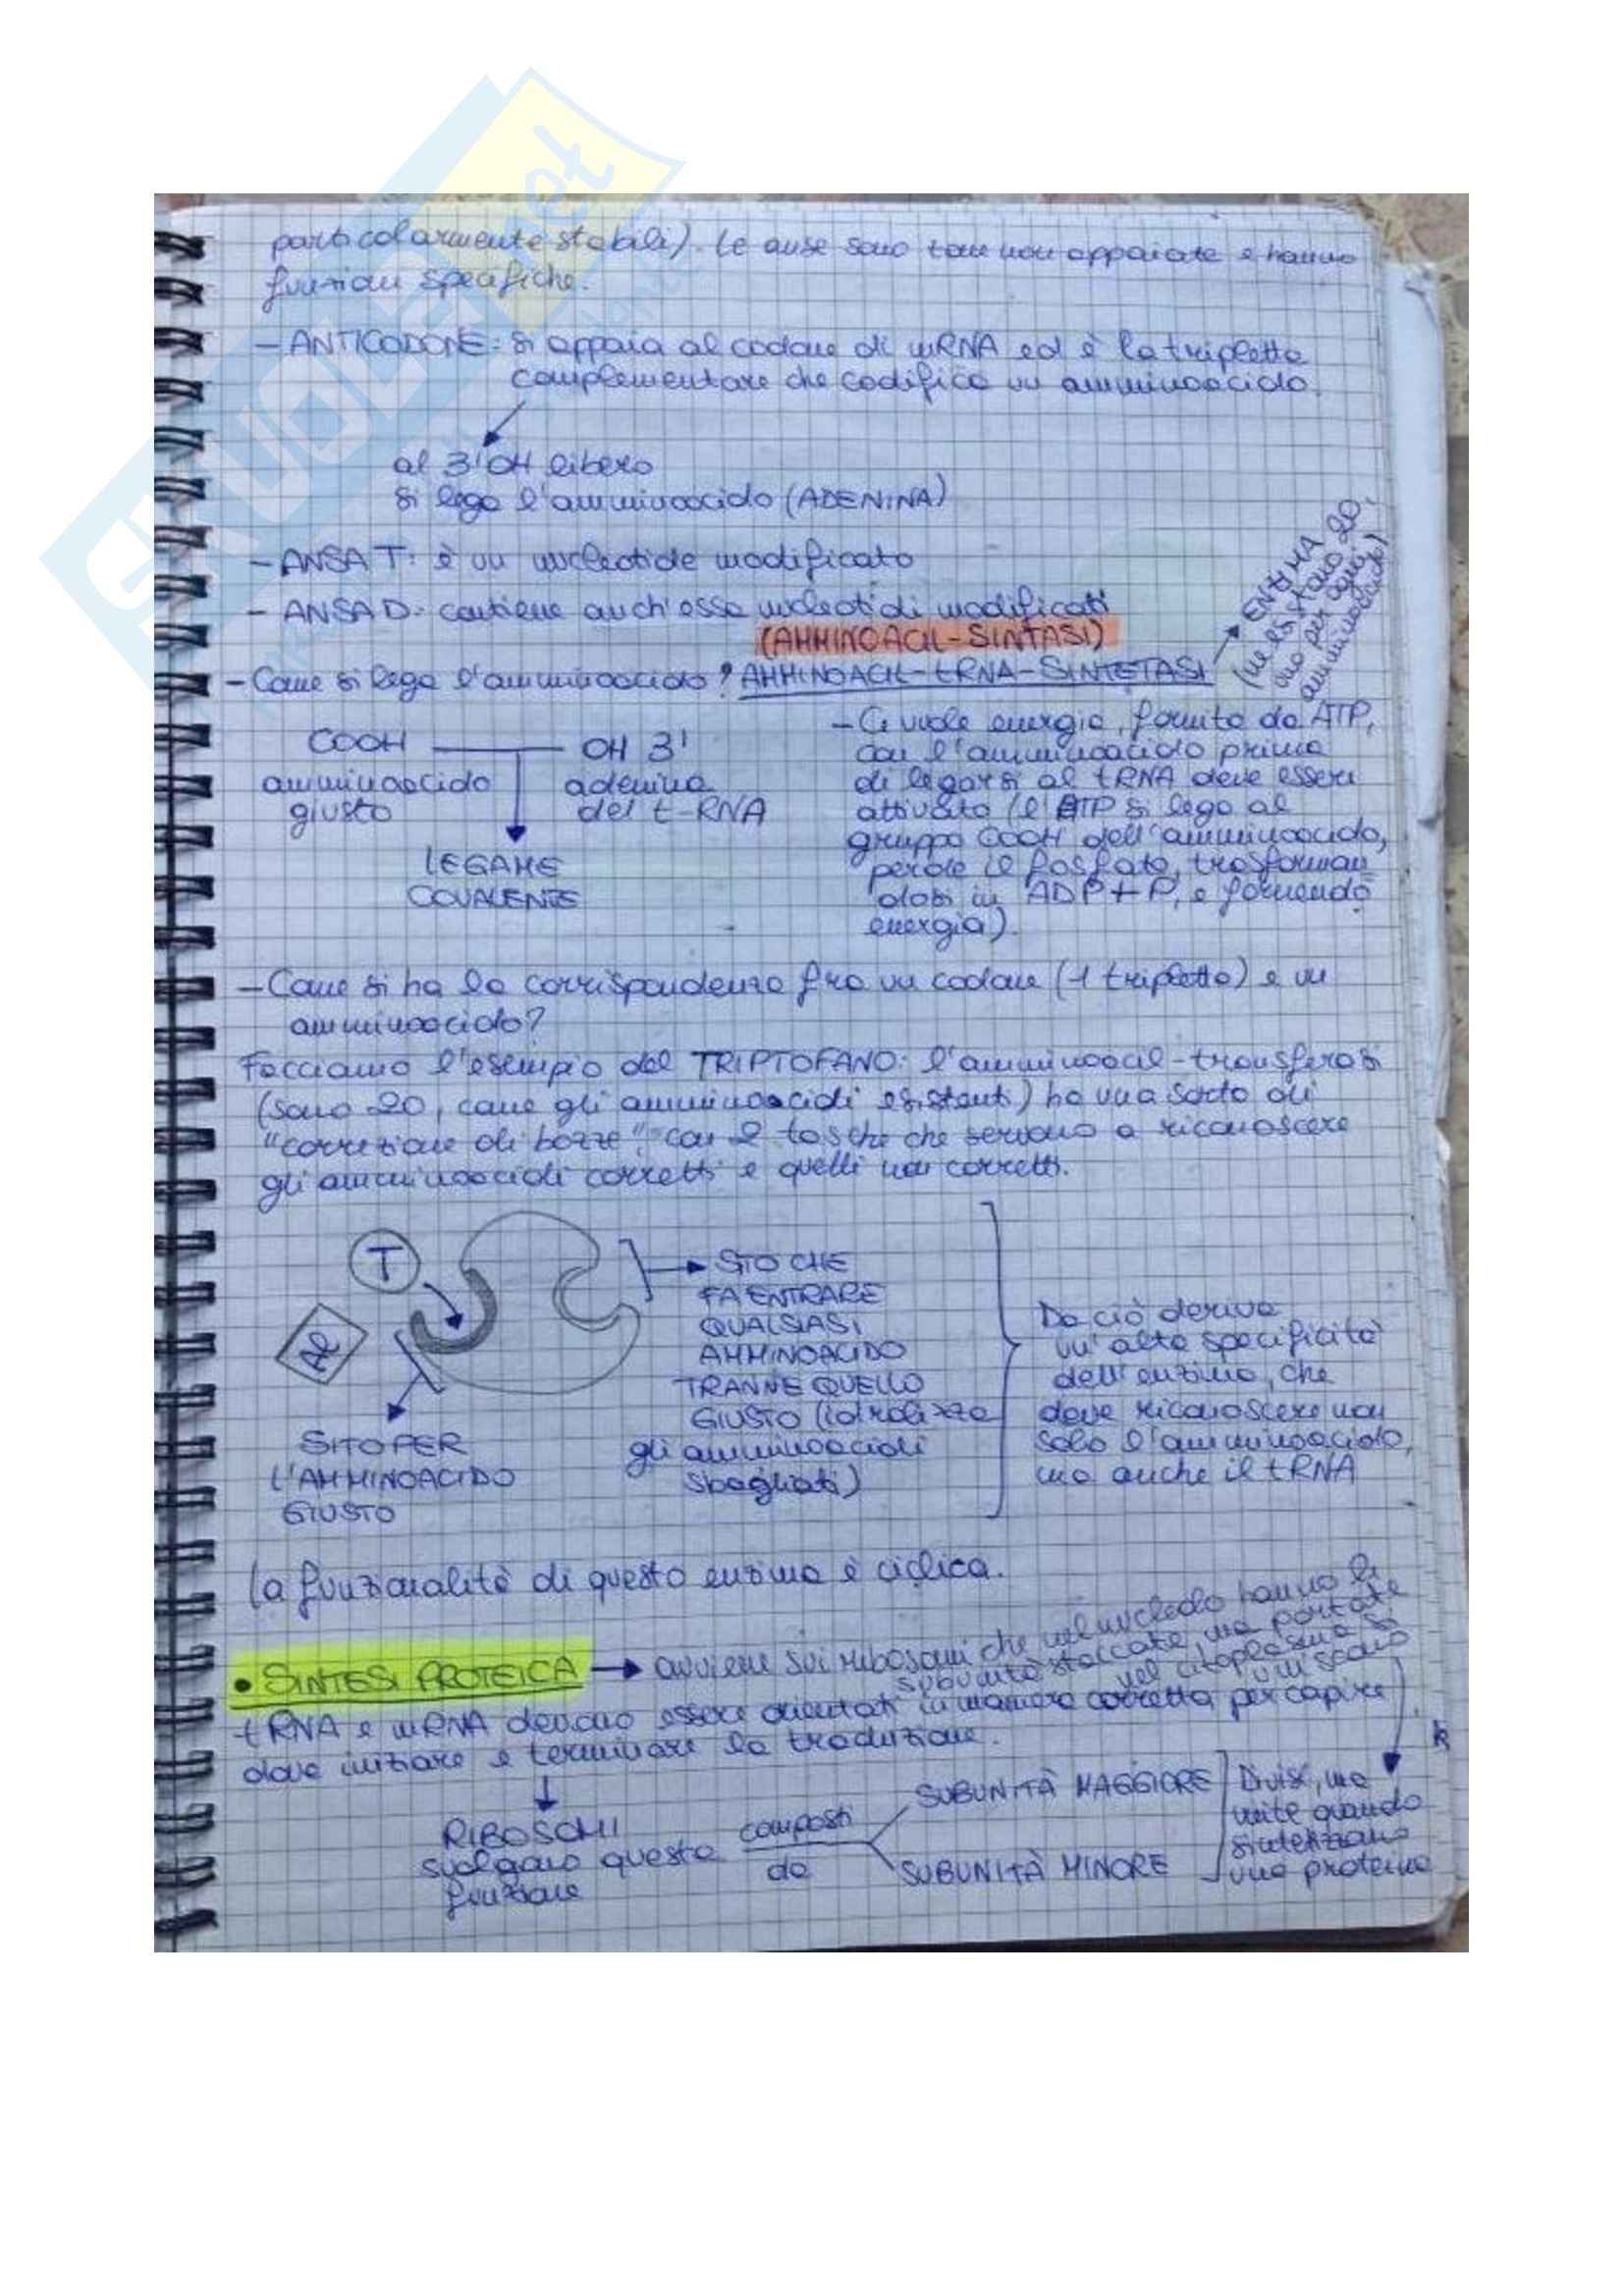 particolarmente stabili). Le anse sono zone non appaiate e hanno
funzioni specifiche.
- ANTICODONE: si appaia al codone di mRNA ed è la tripletta
complementare che codifica un amminoacido.
al 3'OH libero
si lega l'amminoacido (ADENINA)
- ANSA T: è un nucleotide modificato
- ANSA D: contiene anch'essa nucleotidi modificati
(AMMINOACIL-SINTASI)
- Come si lega l'amminoacido? AMMINOACIL-tRNA-SINTETASI
ENZIMA
(ne esistono 20,
uno per ogni
amminoacido)
COOH OH 3'
amminoacido adenina
giusto del t-RNA
LEGAME
COVALENTE
- Ci vuole energia, fornita da ATP,
con l'amminoacido prima
di legarsi al tRNA deve essere
attivato (l'ATP si lega al
gruppo COOH dell'amminoacido,
perde il fosfato, trasforman
dosi in ADP + P, e fornendo
energia).
- Come si ha la corrispondenza fra un codone (1 tripletta) e un
amminoacido?
Facciamo l'esempio del TRIPTOFANO: l'amminoacil-transferasi
(sono 20, come gli amminoacidi esistenti) ha una sorta di
"correzione di bozze", con 2 tasche che servono a riconoscere
gli amminoacidi corretti e quelli non corretti.
T
SITO PER
L'AMMINOACIDO
GIUSTO
SITO CHE
FA ENTRARE
QUALSIASI
AMMINOACIDO
TRANNE QUELLO
GIUSTO (idrolizza
gli amminoacidi
sbagliati)
Da ciò deriva
un'alta specificità
dell'enzima, che
deve riconoscere non
solo l'amminoacido,
ma anche il tRNA
La funzionalità di questo enzima è ciclica.
• SINTESI PROTEICA → avviene sui ribosomi che nel nucleolo hanno le
subunità staccate, ma portate
nel citoplasma si
uniscono
tRNA e mRNA devono essere orientati in maniera corretta per capire
dove iniziare e terminare la traduzione.
RIBOSOMI
svolgono questa
funzione
composti
da
SUBUNITÀ MAGGIORE
SUBUNITÀ MINORE
Divise, ma
unite quando
sintetizzano
una proteina